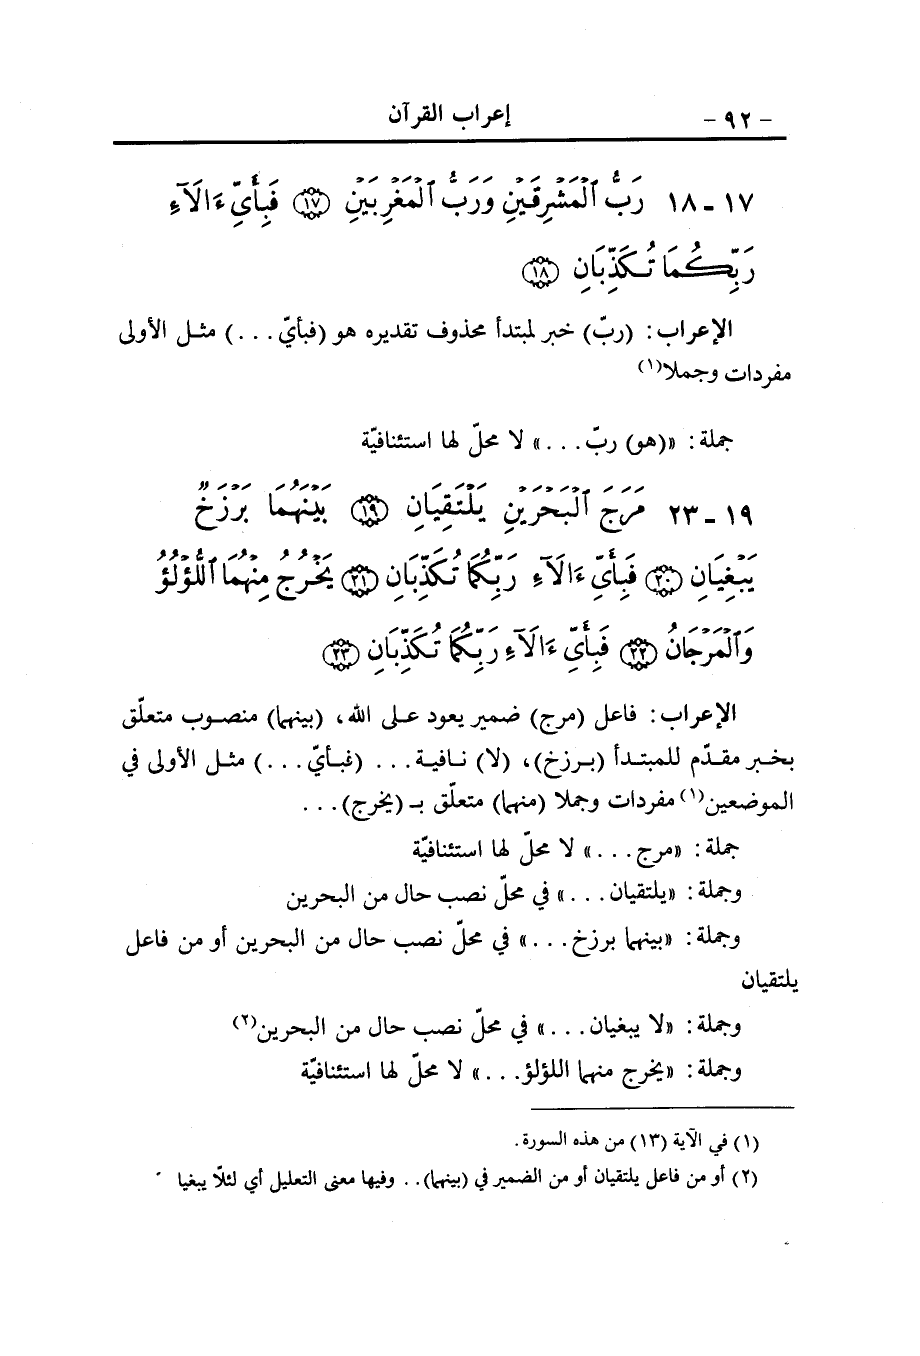 - ٩٢ - إعراب القرآن
١٧ - ١٨ رَبُّ ٱلْمَشْرِقَيْنِ وَرَبُّ ٱلْمَغْرِبَيْنِ ﴿١٧﴾ فَبِأَيِّ ءَالَآءِ
رَبِّكُمَا تُكَذِّبَانِ ﴿١٨﴾
الإعراب: (ربّ) خبر لمبتدأ محذوف تقديره هو (فبأيّ . . .) مثل الأولى
مفردات وجملا(١)
جملة: «(هو) ربّ. . .» لا محلّ لها استئنافيّة
١٩ - ٢٣ مَرَجَ ٱلْبَحْرَيْنِ يَلْتَقِيَانِ ﴿١٩﴾ بَيْنَهُمَا بَرْزَخٌ
يَبْغِيَانِ ﴿٢٠﴾ فَبِأَيِّ ءَالَآءِ رَبِّكُمَا تُكَذِّبَانِ ﴿٢١﴾ يَخْرُجُ مِنْهُمَا ٱللُّؤْلُؤُ
وَٱلْمَرْجَانُ ﴿٢٢﴾ فَبِأَيِّ ءَالَآءِ رَبِّكُمَا تُكَذِّبَانِ ﴿٢٣﴾
الإعراب: فاعل (مرج) ضمير يعود على الله، (بينهما) منصوب متعلّق
بخبر مقدّم للمبتدأ (برزخ)، (لا) نافية. . . (غبأيّ. . .) مثل الأولى في
الموضعين(١) مفردات وجملا (منهما) متعلّق بـ (يخرج). . .
جملة: «مرج. . .» لا محلّ لها استئنافيّة
وجملة: «يلتقيان. . .» في محلّ نصب حال من البحرين
وجملة: «بينهما برزخ. . .» في محلّ نصب حال من البحرين أو من فاعل
يلتقيان
وجملة: «لا يبغيان. . .» في محلّ نصب حال من البحرين(٢)
وجملة: «يخرج منهما اللؤلؤ. . .» لا محلّ لها استئنافيّة
(١) في الآية (١٣) من هذه السورة.
(٢) أو من فاعل يلتقيان أو من الضمير في (بينهما). . وفيها معنى التعليل أي لئلّا يبغيا